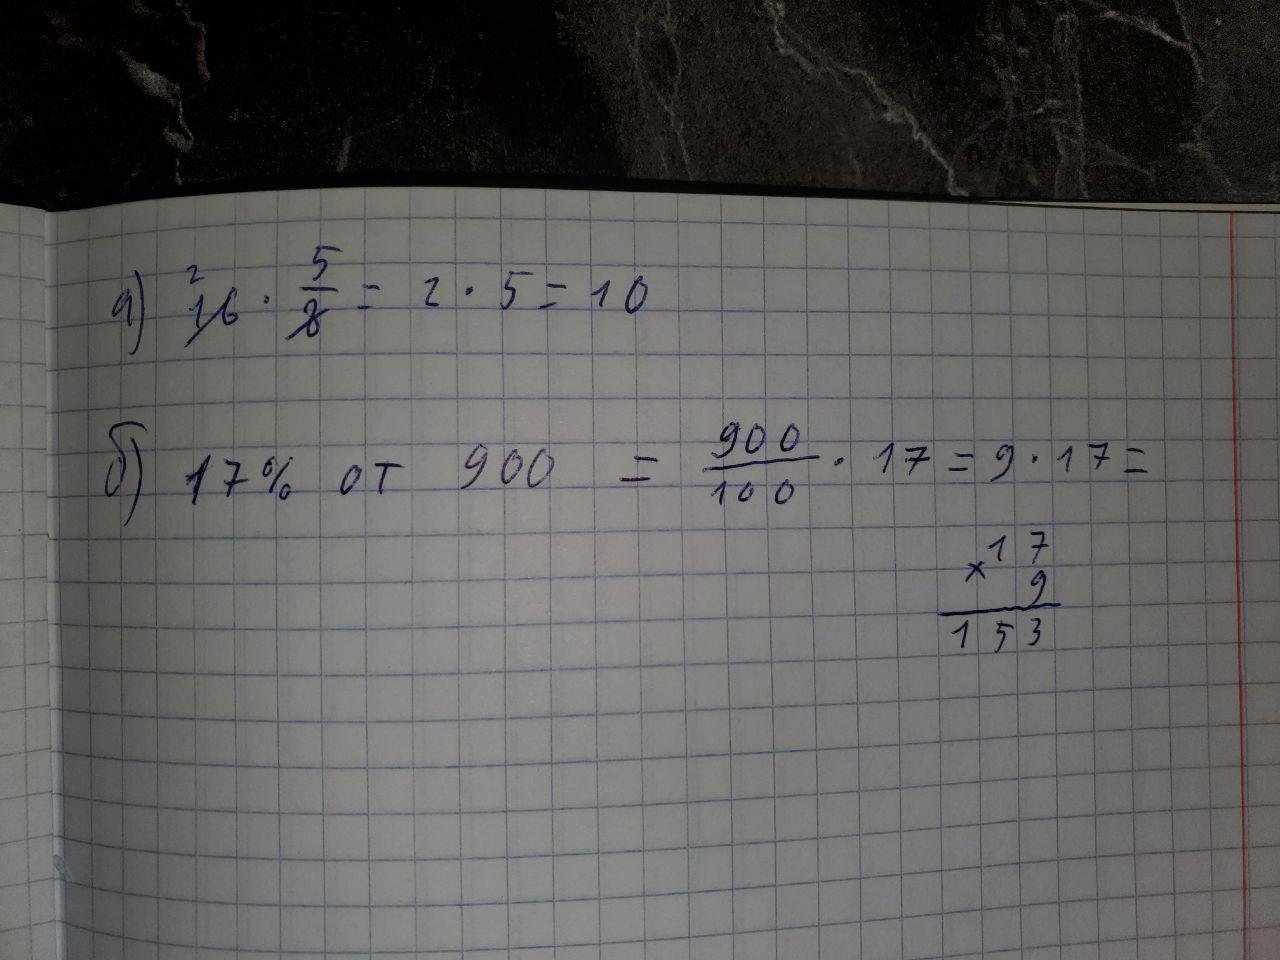 а) 16 · 5/8 = 2 · 5 = 10
2
б) 17% от 900 = 900/100 · 17 = 9 · 17 =
× 17
9
153